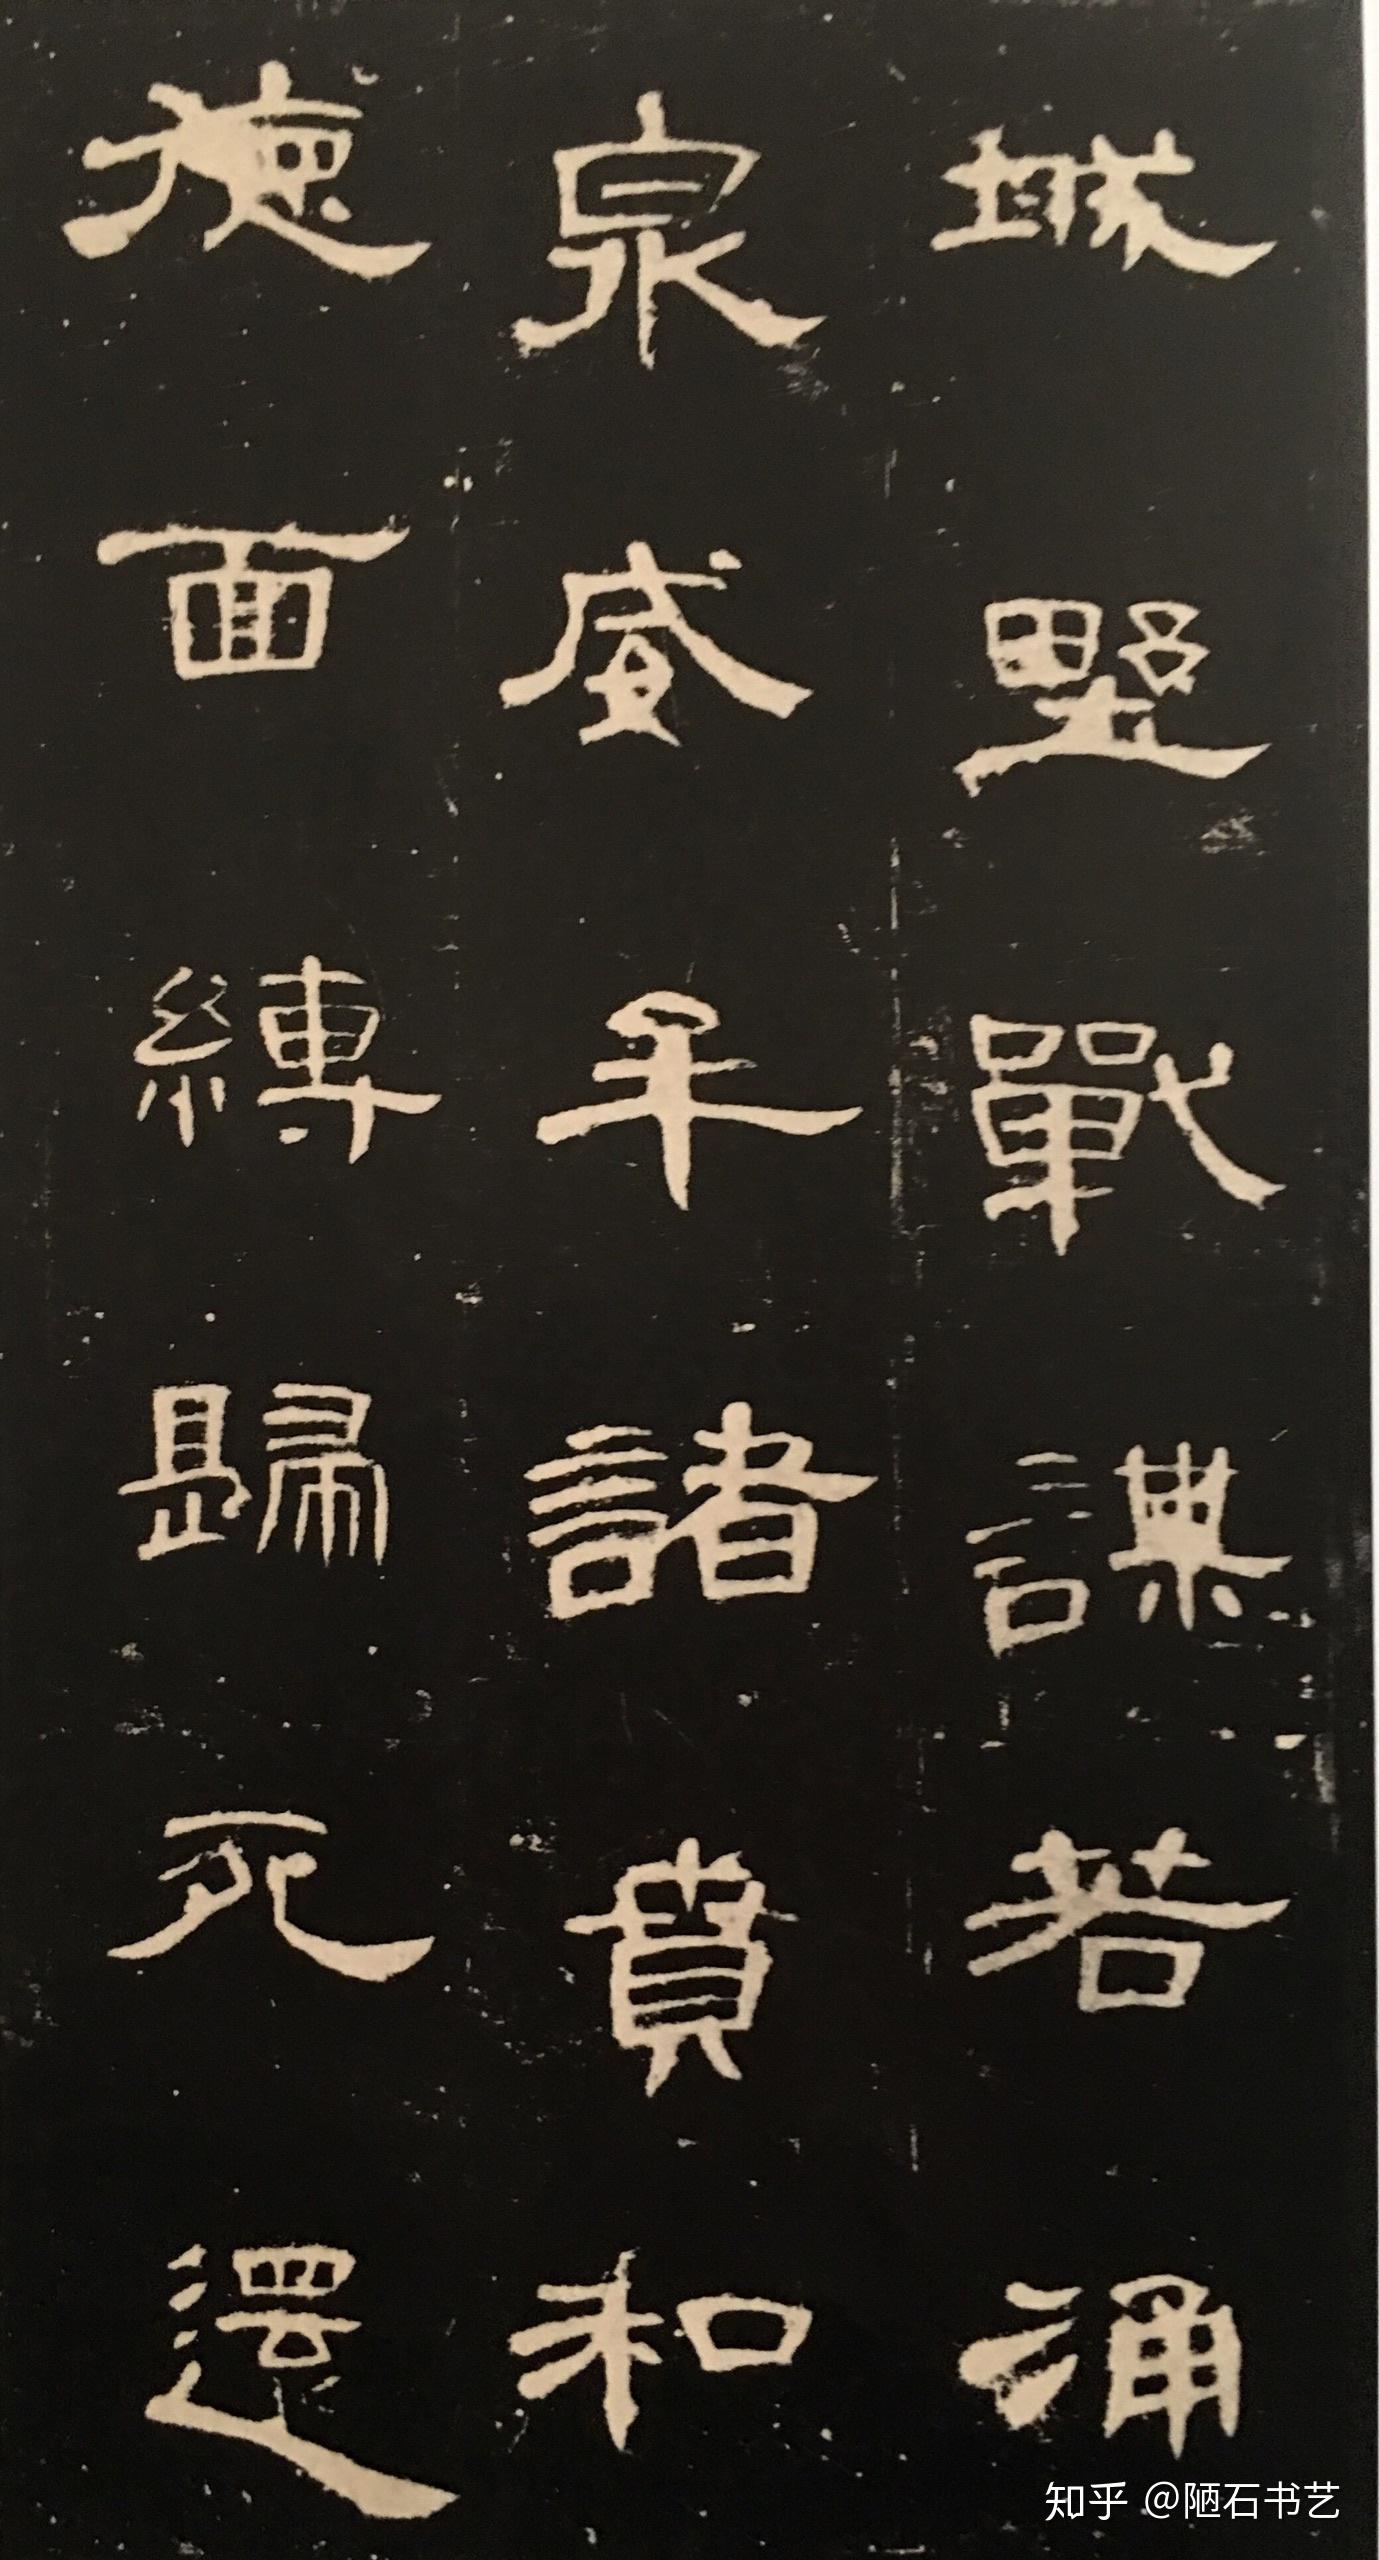 城野戰謀若涌
泉威牟諸賁和
德面縛歸死還
知乎 @陋石书艺